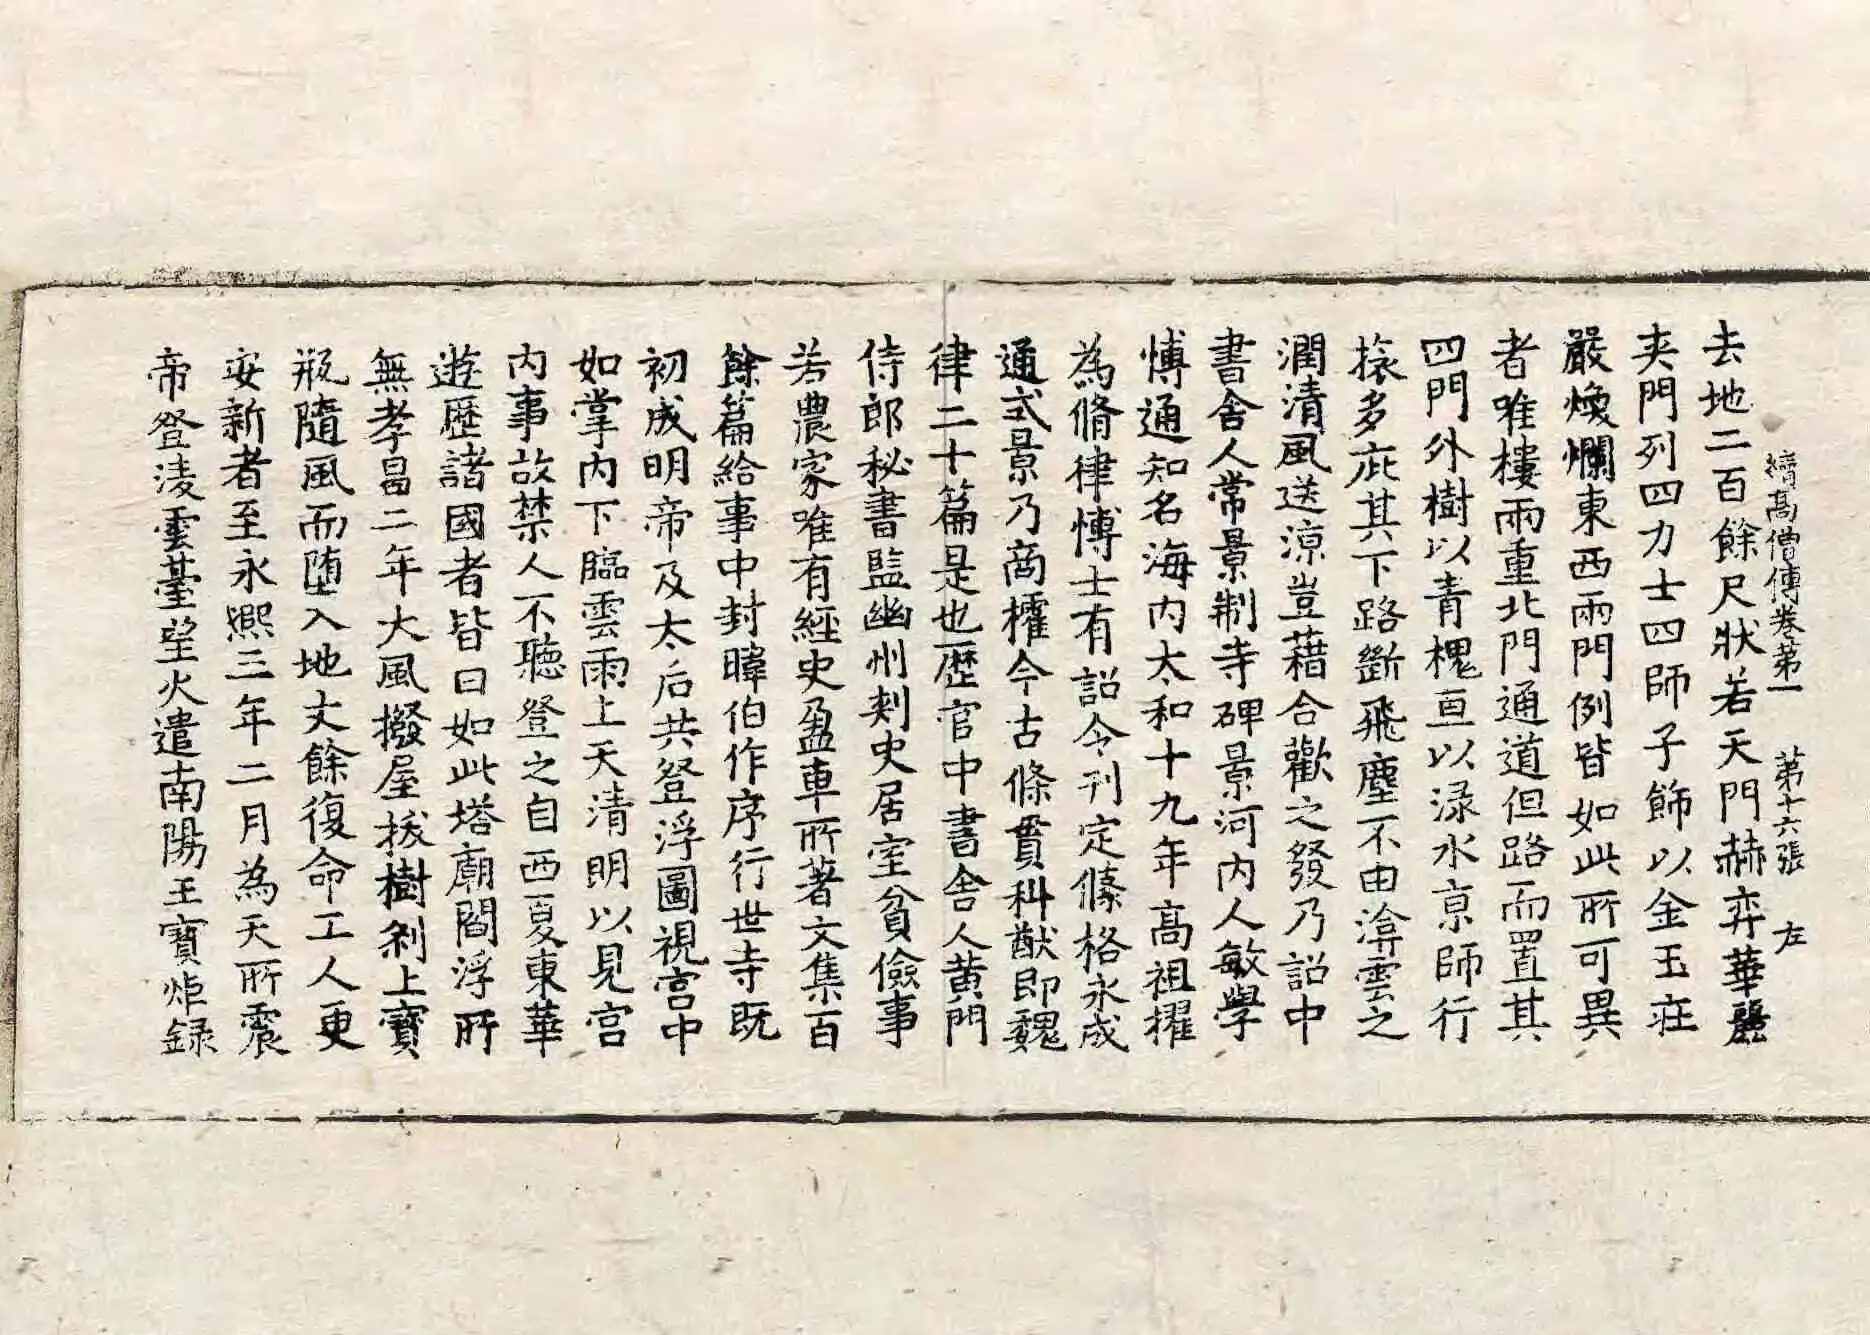 續高僧傳卷第一　第十六張　左
去地二百餘尺狀若天門赫弈華麗
夾門列四力士四師子飾以金玉莊
嚴煥爛東西兩門例皆如此所可異
者唯樓兩重北門通道但路而置其
四門外樹以青槐亘以淥水京師行
旅多庇其下路斷飛塵不由渰雲之
潤清風送涼豈藉合歡之發乃詔中
書舍人常景制寺碑景河内人敏學
博通知名海内太和十九年高祖擢
為脩律博士有詔令刊定條格永成
通式景乃商榷今古條貫科猷即魏
律二十篇是也歷官中書舍人黄門
侍郎秘書監幽州刺史居室貧儉事
若農家唯有經史盈車所著文集百
餘篇給事中封暐伯作序行世寺既
初成明帝及太后共登浮圖視宫中
如掌内下臨雲雨上天清明以見宫
内事故禁人不聽登之自西夏東華
遊歷諸國者皆曰如此塔廟閻浮所
無孝昌二年大風撥屋拔樹刹上寶
瓶隨風而墮入地丈餘復命工人更
安新者至永熙三年二月為天所震
帝登淩雲臺望火遣南陽王寶炬録